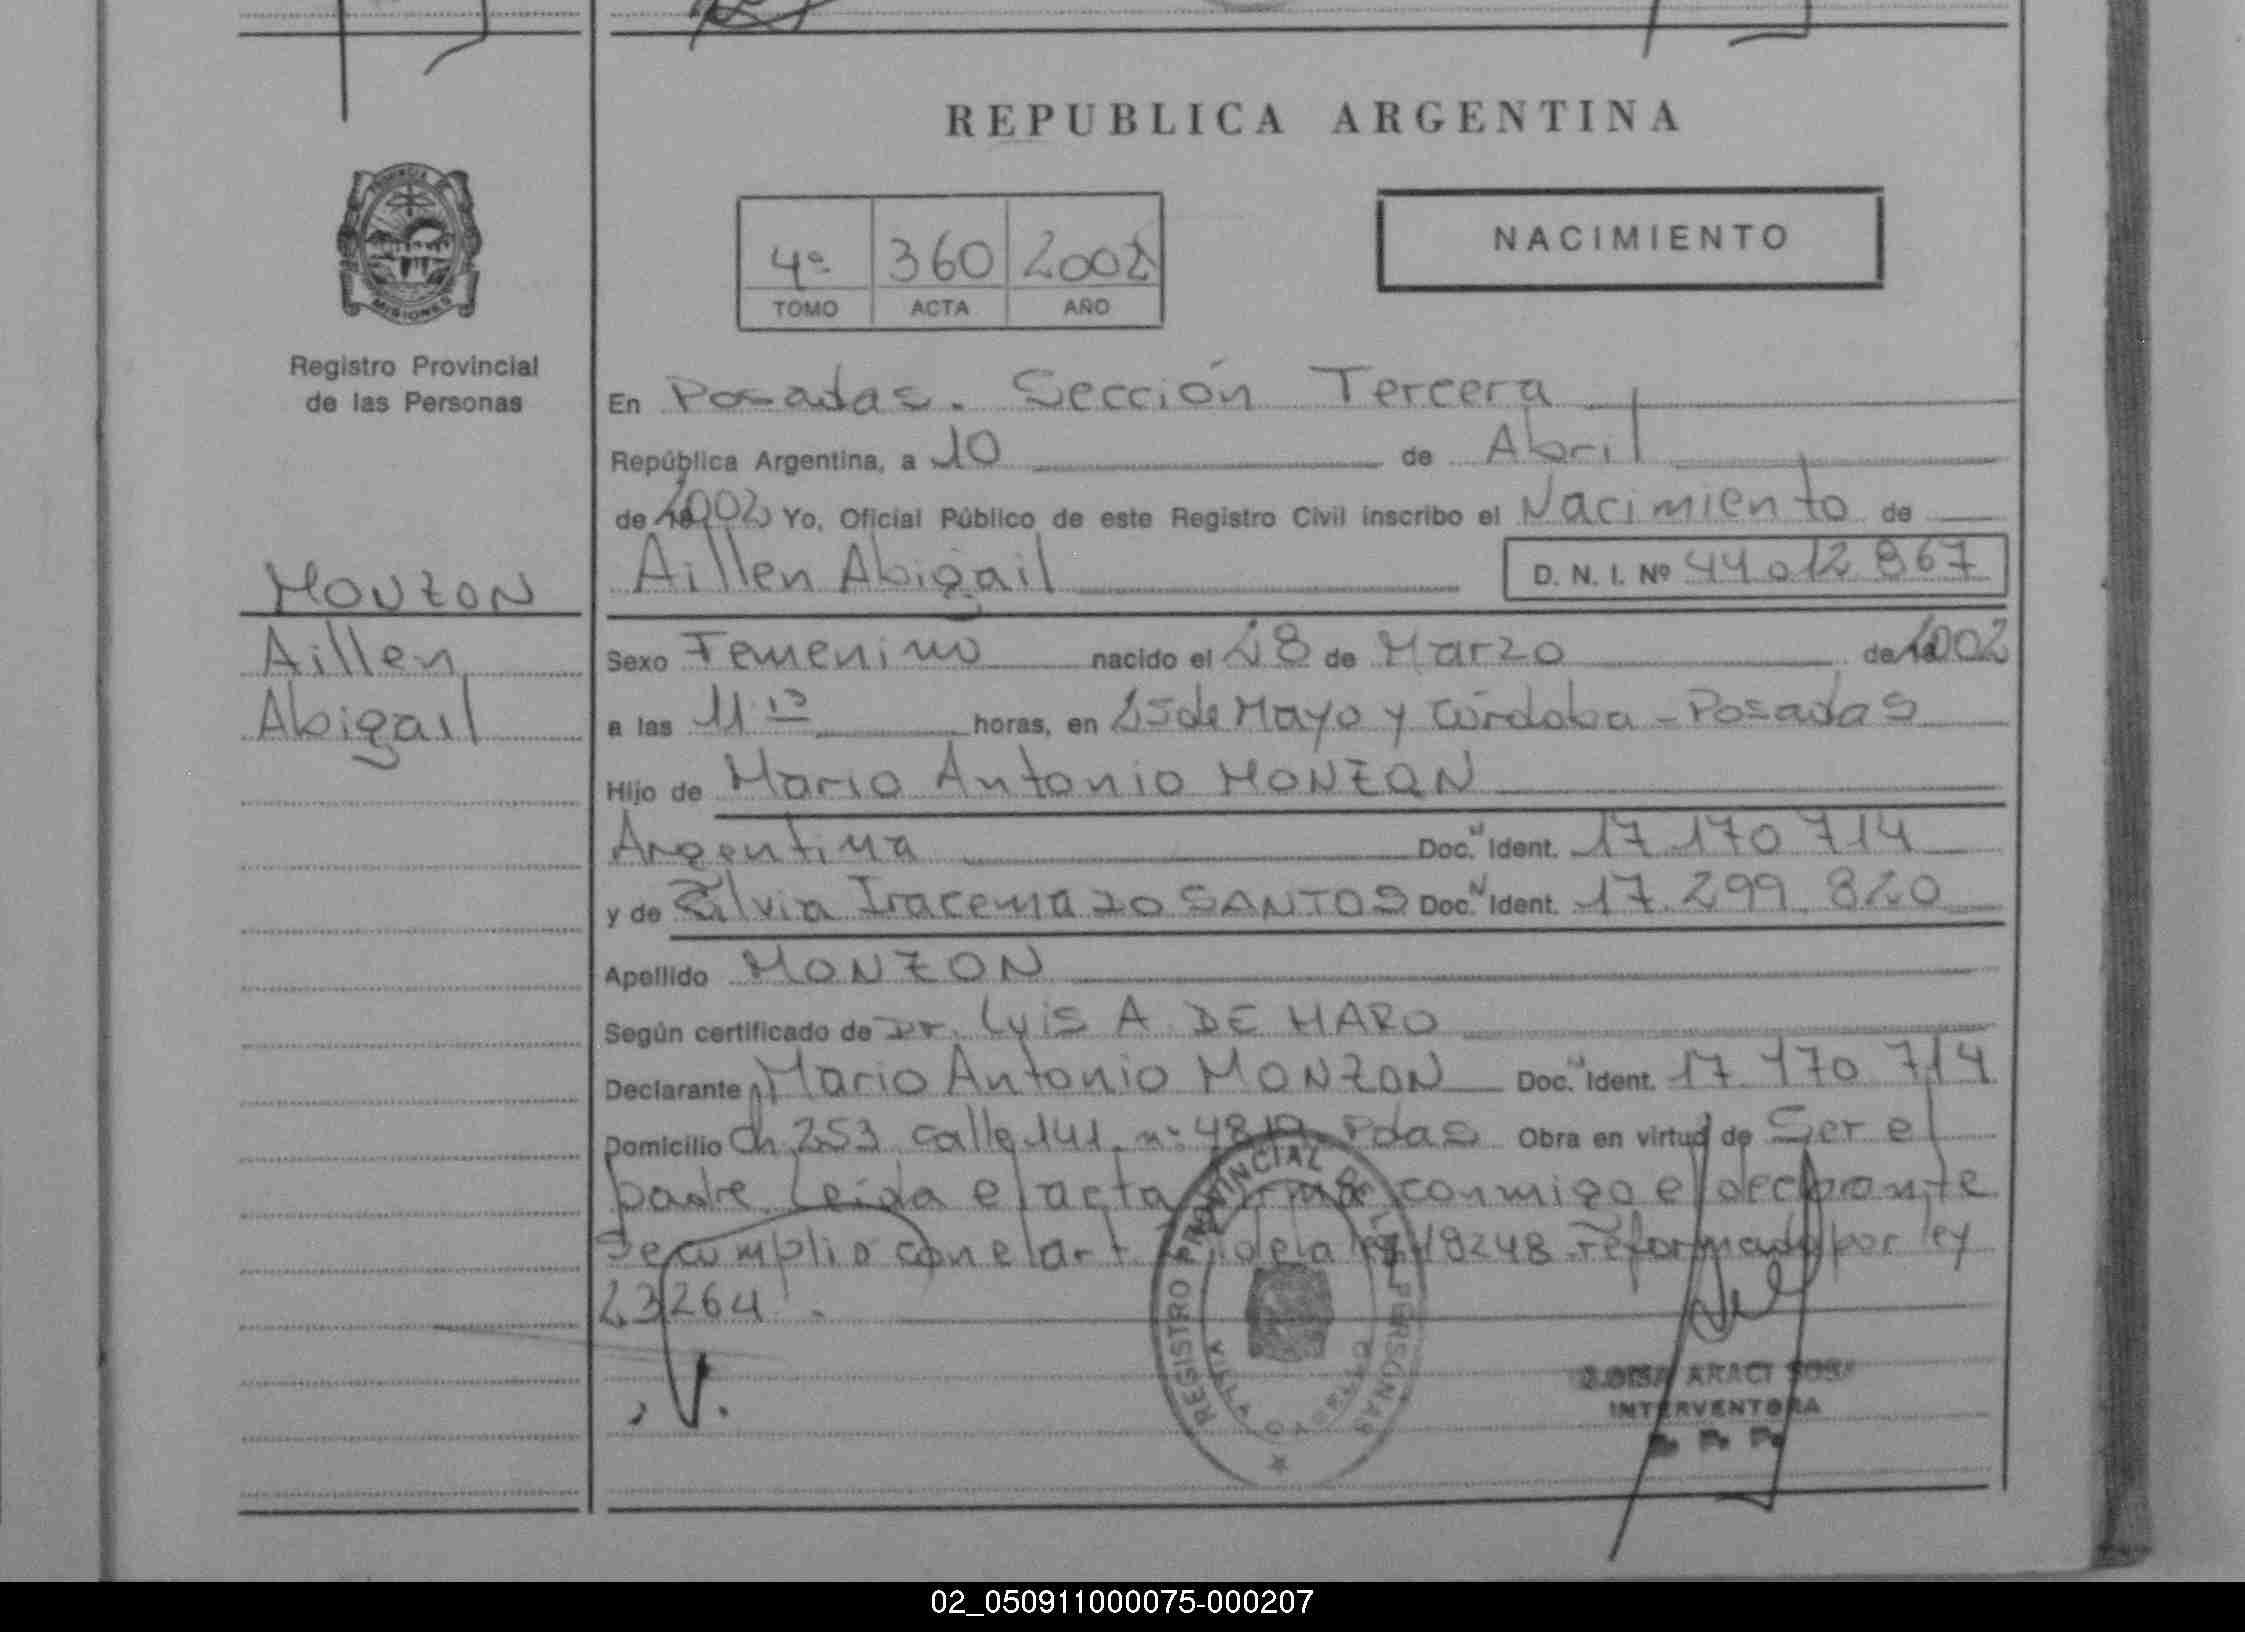 REPUBLICA ARGENTINA
PROVINCIA DE
MISIONES
Registro Provincial
de las Personas
4º 360 2002
TOMO ACTA AÑO
NACIMIENTO
En Posadas. Sección Tercera
República Argentina, a 10 de Abril
de 2002 Yo, Oficial Público de este Registro Civil inscribo el Nacimiento de
Aillen Abigail D. N. I. Nº 44012867
MONZON
Aillen
Abigail
Sexo Femenino nacido el 28 de Marzo de 2002
a las 11 horas, en 25 de Mayo y Córdoba - Posadas
Hijo de Mario Antonio MONZON
Argentina Doc. N Ident. 17 170 714
y de Silvia Iracema DO SANTOS Doc. N Ident. 17.299.820
Apellido MONZON
Según certificado de Dr. Luis A. DE HARO
Declarante Mario Antonio MONZON Doc. N Ident. 17 170 714
Domicilio Ch 253 calle 141 nº Pdas Obra en virtud de Ser el
padre Leída el acta firma conmigo el declarante
Se cumplio con el art de la ley 18248 reformado por ley
23264.
REGISTRO PROVINCIAL DE LAS PERSONAS
ARACI SOSA
INTERVENTORA
02_050911000075-000207